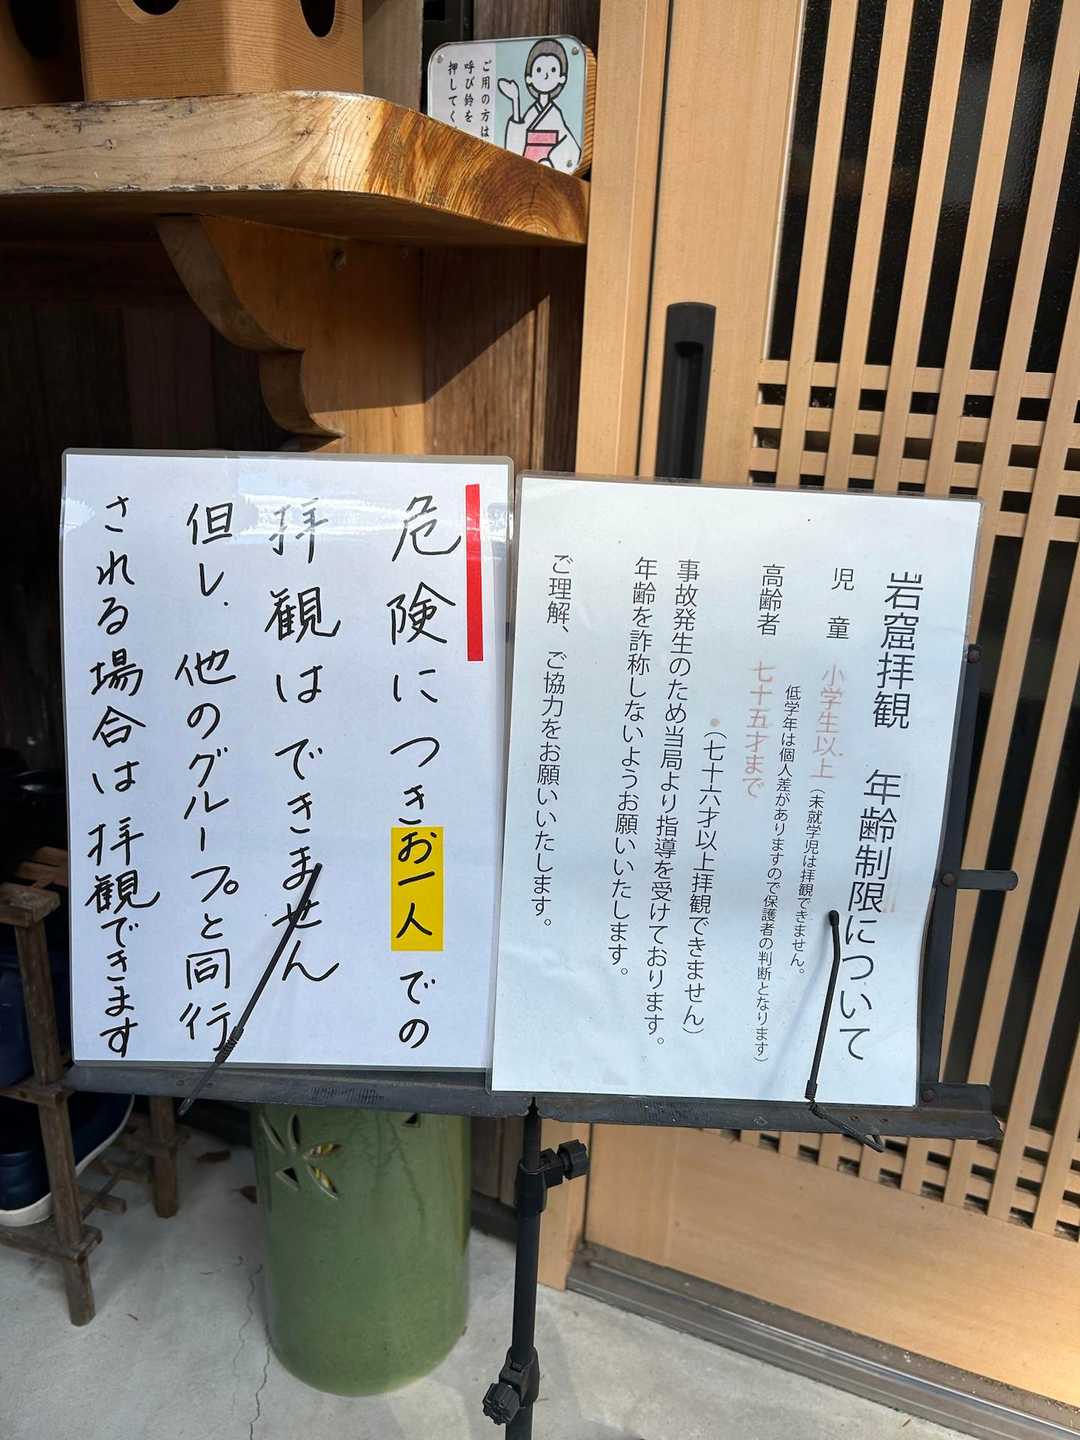 ご用の方は
呼び鈴を
押してく
岩窟拝観 年齢制限について
児童 小学生以上 (未就学児は拝観できません。
低学年は個人差がありますので保護者の判断となります)
高齢者 七十五才まで
●(七十六才以上拝観できません)
事故発生のため当局より指導を受けております。
年齢を詐称しないようお願いいたします。
ご理解、ご協力をお願いいたします。
危険につきお一人での
拝観はできません
但し、他のグループと同行
される場合は拝観できます